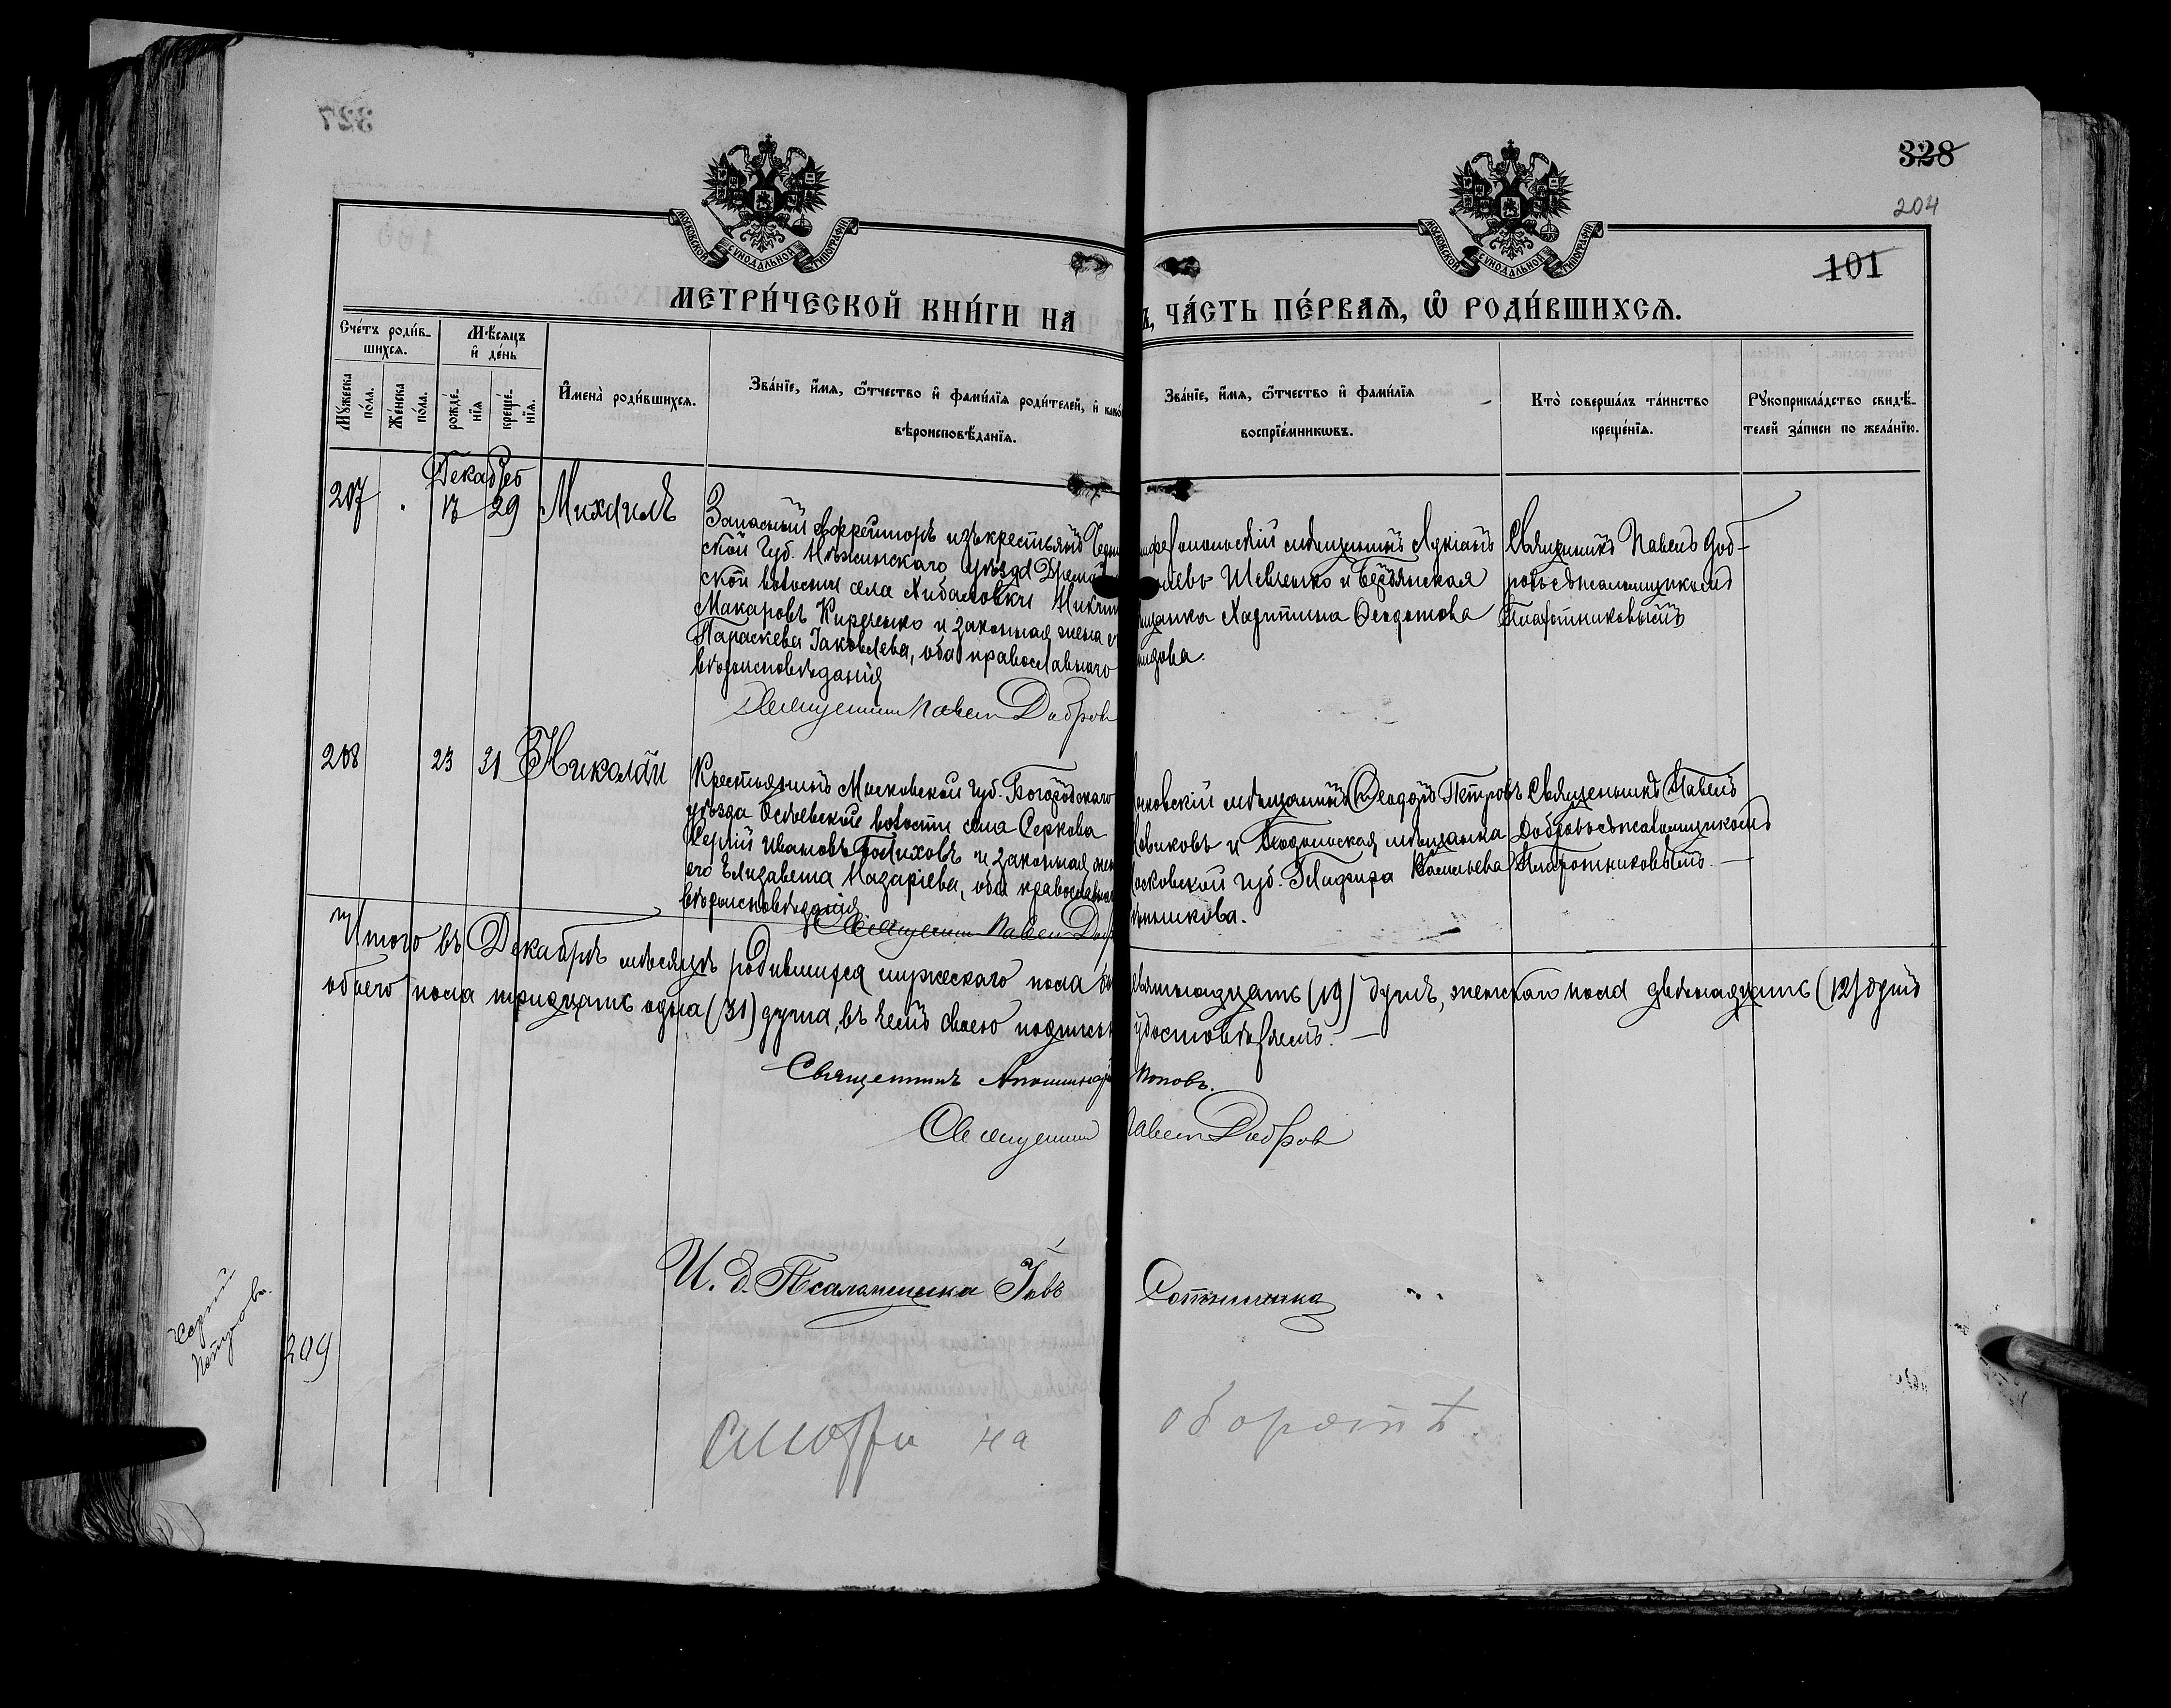 327
328
204
101
МОСКОВСКОЙ СѴНОДАЛЬНОЙ ТИПОГРАФІИ
МОСКОВСКОЙ СѴНОДАЛЬНОЙ ТИПОГРАФІИ
МЕТРИ́ЧЕСКОЙ КНИ́ГИ НА
, ЧА́СТЬ ПЕ́РВАѦ, Ѿ РОДИ́ВШИХСѦ.
Сче́тъ роди́в-
шихсѧ.
Мꙋ́жеска по́ла.
Же́нска по́ла.
Мѣ́сѧцъ
и҆ де́нь
рожде́-
нїѧ
креще́-
нїѧ.
И҆мена̀ роди́вшихсѧ.
Зва́нїе, и҆́мѧ, ѻ҆́тчество и҆ фами́лїѧ роди́телей, и҆ како
вѣроисповѣ́данїѧ.
Зва́нїе, и҆́мѧ, ѻ҆́тчество и҆ фами́лїѧ
воспрїе́мникѡвъ.
Кто̀ соверша́лъ та́инство
креще́нїѧ.
Рꙋкоприкла́дство свидѣ́-
телей за́писи по жела́нїю.
Декабрь
207
13
29
Михаилъ
Запасный ефрейторъ изъ крестьянъ Черни
ской Губ. Нѣжинскаго уѣзда
ской волости села Хибаловки Никит
Макаровъ Кириенко и законная жена е
Параскева Іаковлева, оба православнаго
вѣроисповѣданія
Священник Павел Добров
феропольскій мѣщанинъ Лукіанъ
Шевченко и Бердянская
щанка Харитина Ѳеодотова
мидова.
Священникъ Павелъ Доб-
ровъ съ псаломщикомъ
Плотниковымъ
208
23
31
Николай
Крестьянинъ Московской Губ. Богородскаго
уѣзда волости села Серкова
Сергій Ивановъ и законная жен
его Елизавета Назаріева, оба православна
вѣроисповѣданія
Священник Павел Доб
осковскій мѣщанинъ Ѳеодоръ Петровъ
овиковъ и Подольская мѣщанка
осковской губ. Глафира Васильева
нышкова.
Священникъ Павелъ
Добровъ съ псаломщикомъ
Плотниковымъ. —
Итого въ Декабрѣ мѣсяцѣ родившихся мужескаго пола
евятнадцать (19) душъ, женскаго пола двѣнадцать (12) душъ
обоего пола тридцать одна (31) душа, въ чемъ своею подписью
удостовѣряемъ. —
Священникъ Аполлинарій Поповъ.
Священник Павел Добров
И. д. Псаломщика Іовъ
Сотниченко
Сергій
209
смотри на
оборотѣ